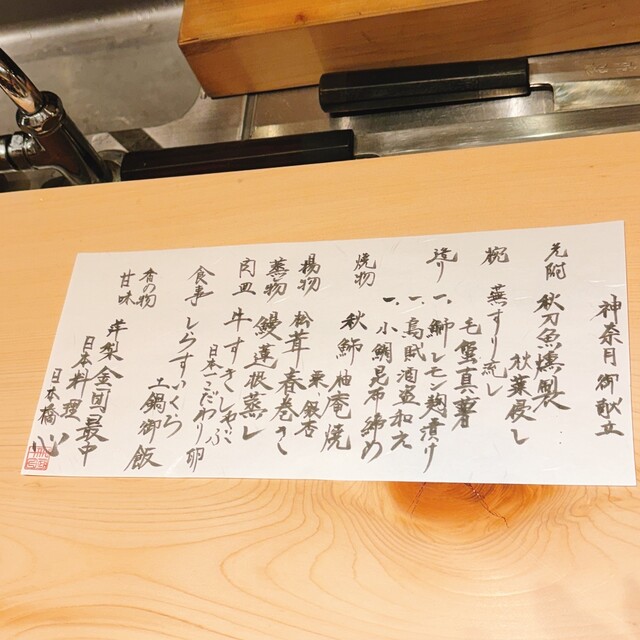 神奈月御献立
先附 秋刀魚燻製
秋葉浸し
椀 蕪すり流し
毛蟹真薯
造り 一、鰤レモン麹漬け
一、烏賊酒盗和え
一、小鯛昆布締め
焼物 秋鰤柚庵焼
栗、銀杏
揚物 松茸春巻き
蒸物 鰻蓮根蒸し
肉皿 牛すきしゃぶ
日本一こだわり卵
食事 しらすいくら
土鍋御飯
香の物
甘味 洋梨金団最中
日本料理
日本橋 心